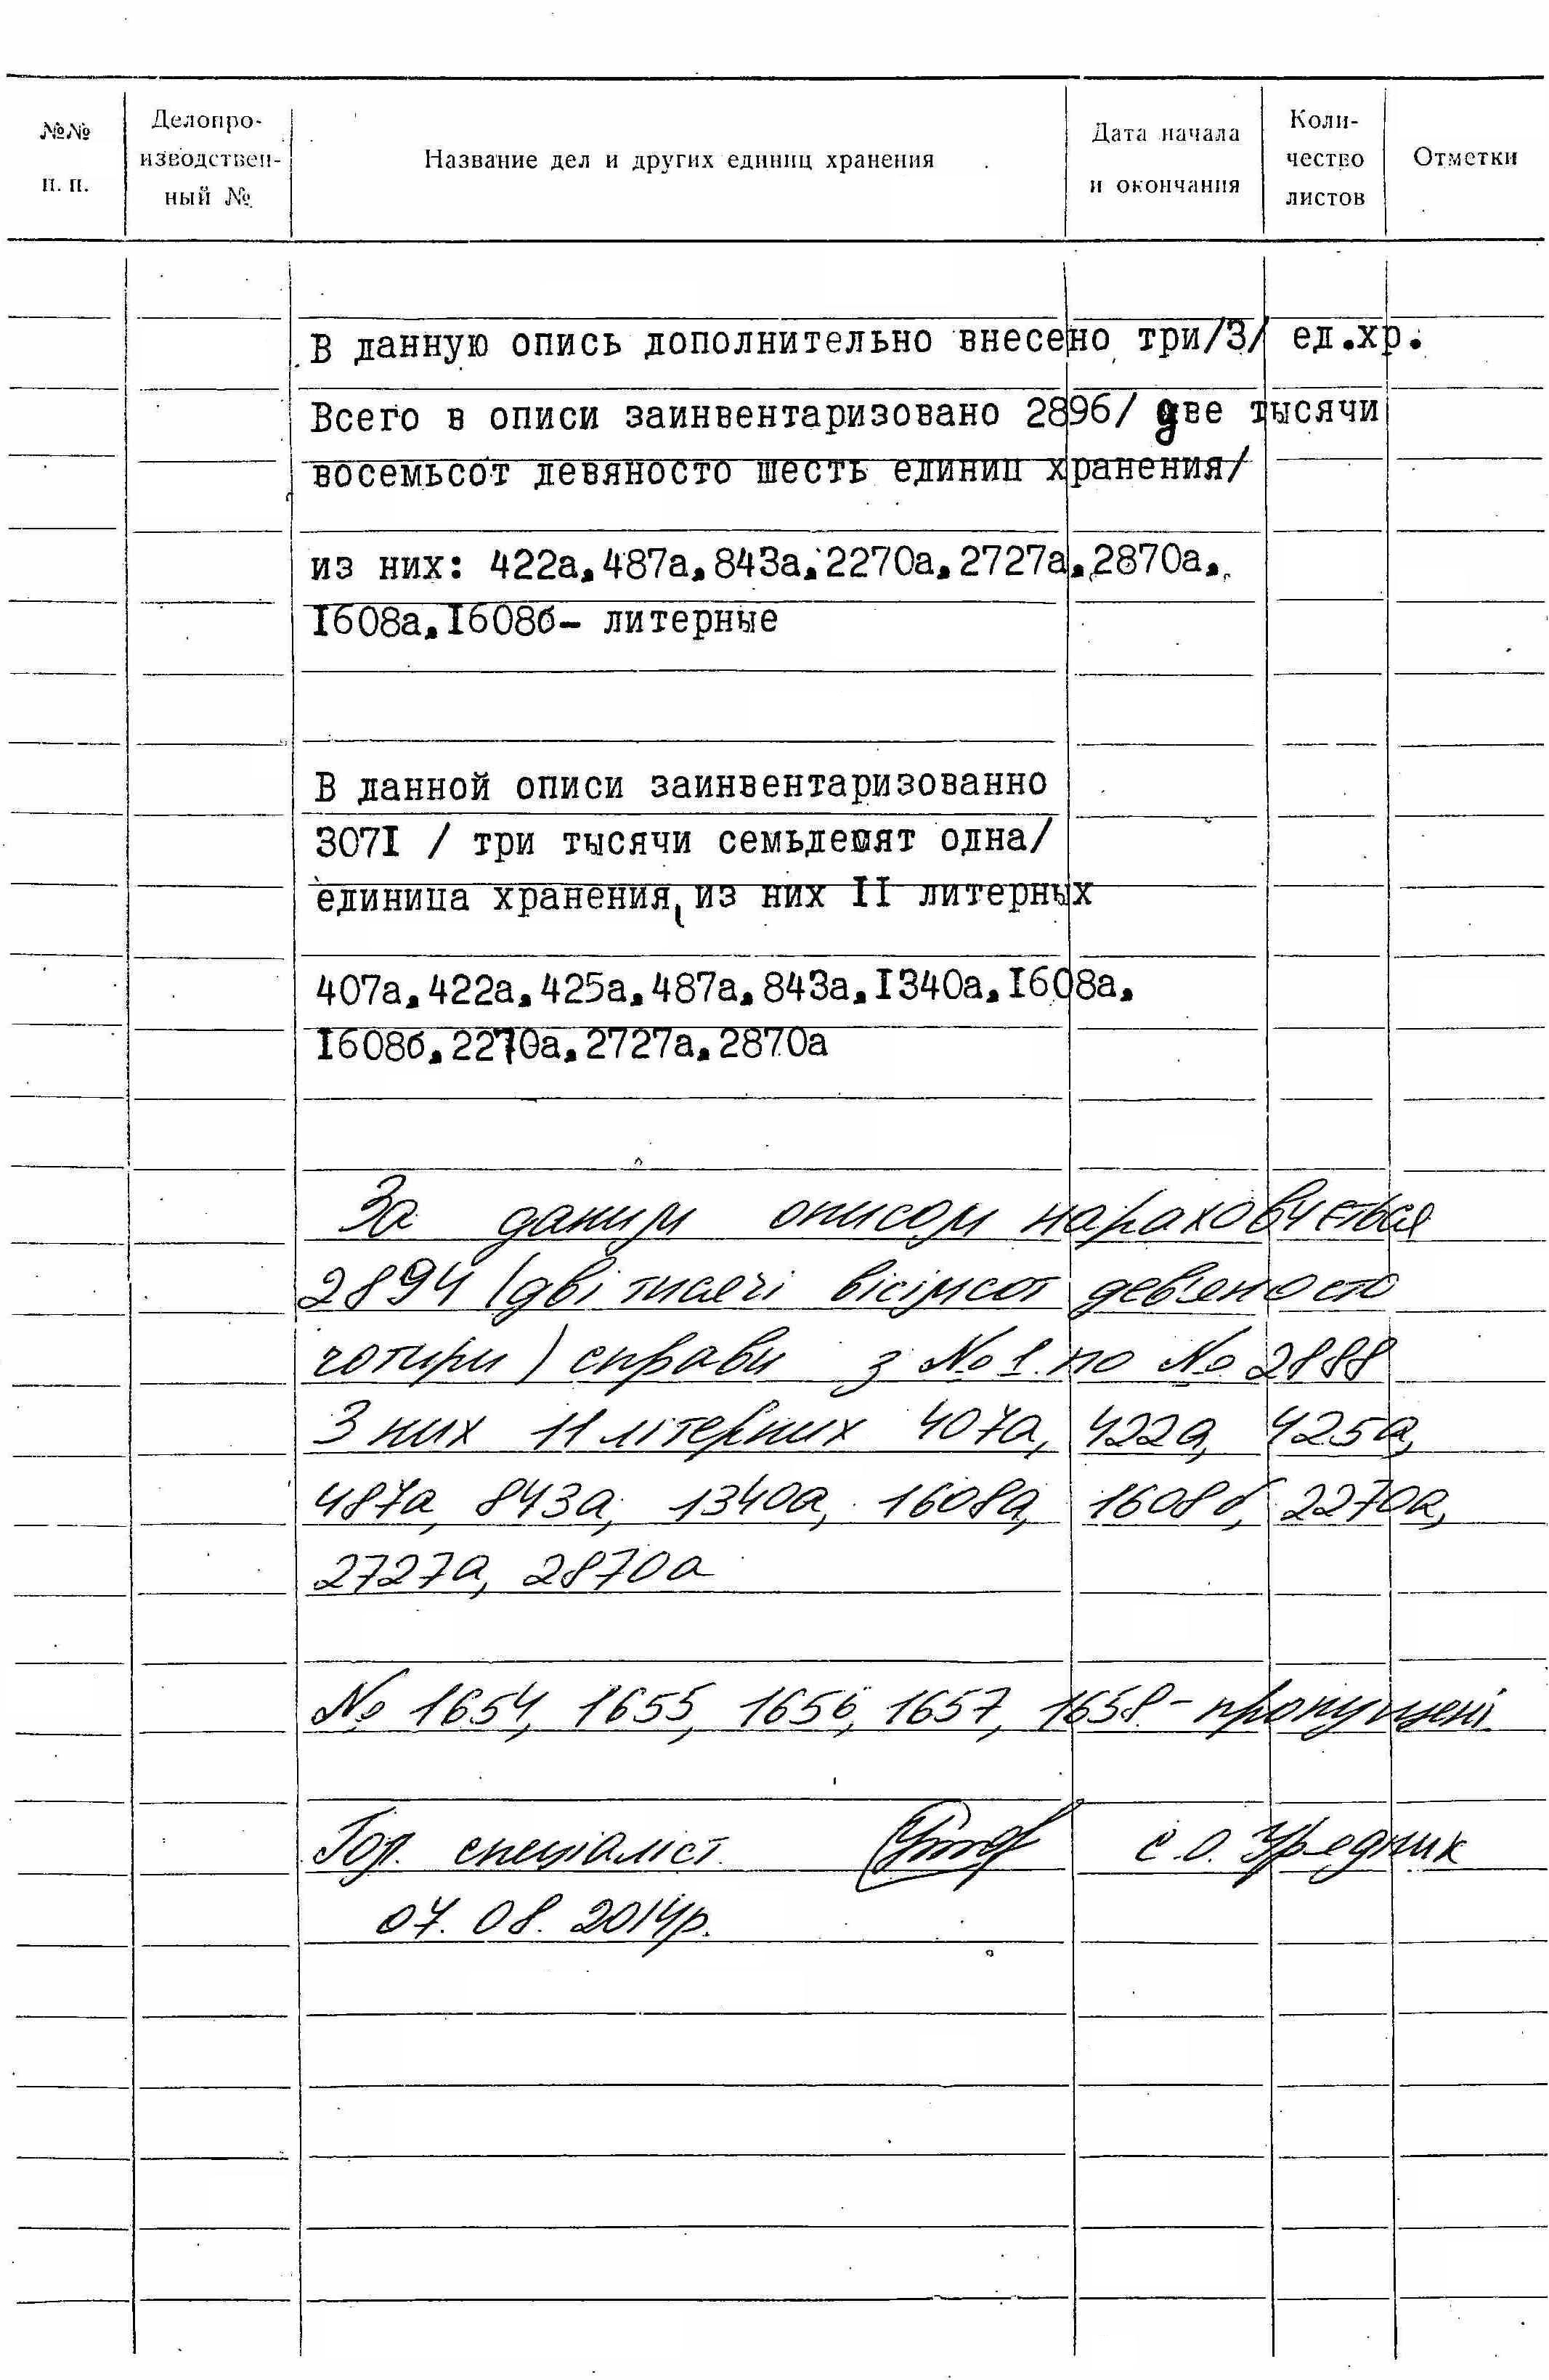 №№ п. п.
Делопро-
изводствен-
ный №
Название дел и других единиц хранения
Дата начала
и окончания
Коли-
чество
листов
Отметки
В данную опись дополнительно внесено три/3/ ед.хр.
Всего в описи заинвентаризовано 2896/ две тысячи
восемьсот девяносто шесть единиц хранения/
из них: 422а,487а,843а,2270а,2727а,2870а,
I608а,I608б- литерные
В данной описи заинвентаризованно
307I / три тысячи семьдесят одна/
единица хранения, из них II литерных
407а,422а,425а,487а,843а,I340а,I608а,
I608б,2270а,2727а,2870а
За даним описом нараховується
2894 (дві тисячі вісімсот дев'яносто
чотири) справи з №1 по № 2888
З них 11 літерних 407а, 422а, 425а,
487а, 843а, 1340а, 1608а, 1608б, 2270а,
2727а, 2870а
№ 1654, 1655, 1656, 1657, 1658 - пропущені.
Гол. спеціаліст С.О. Урядник
07. 08. 2014р.